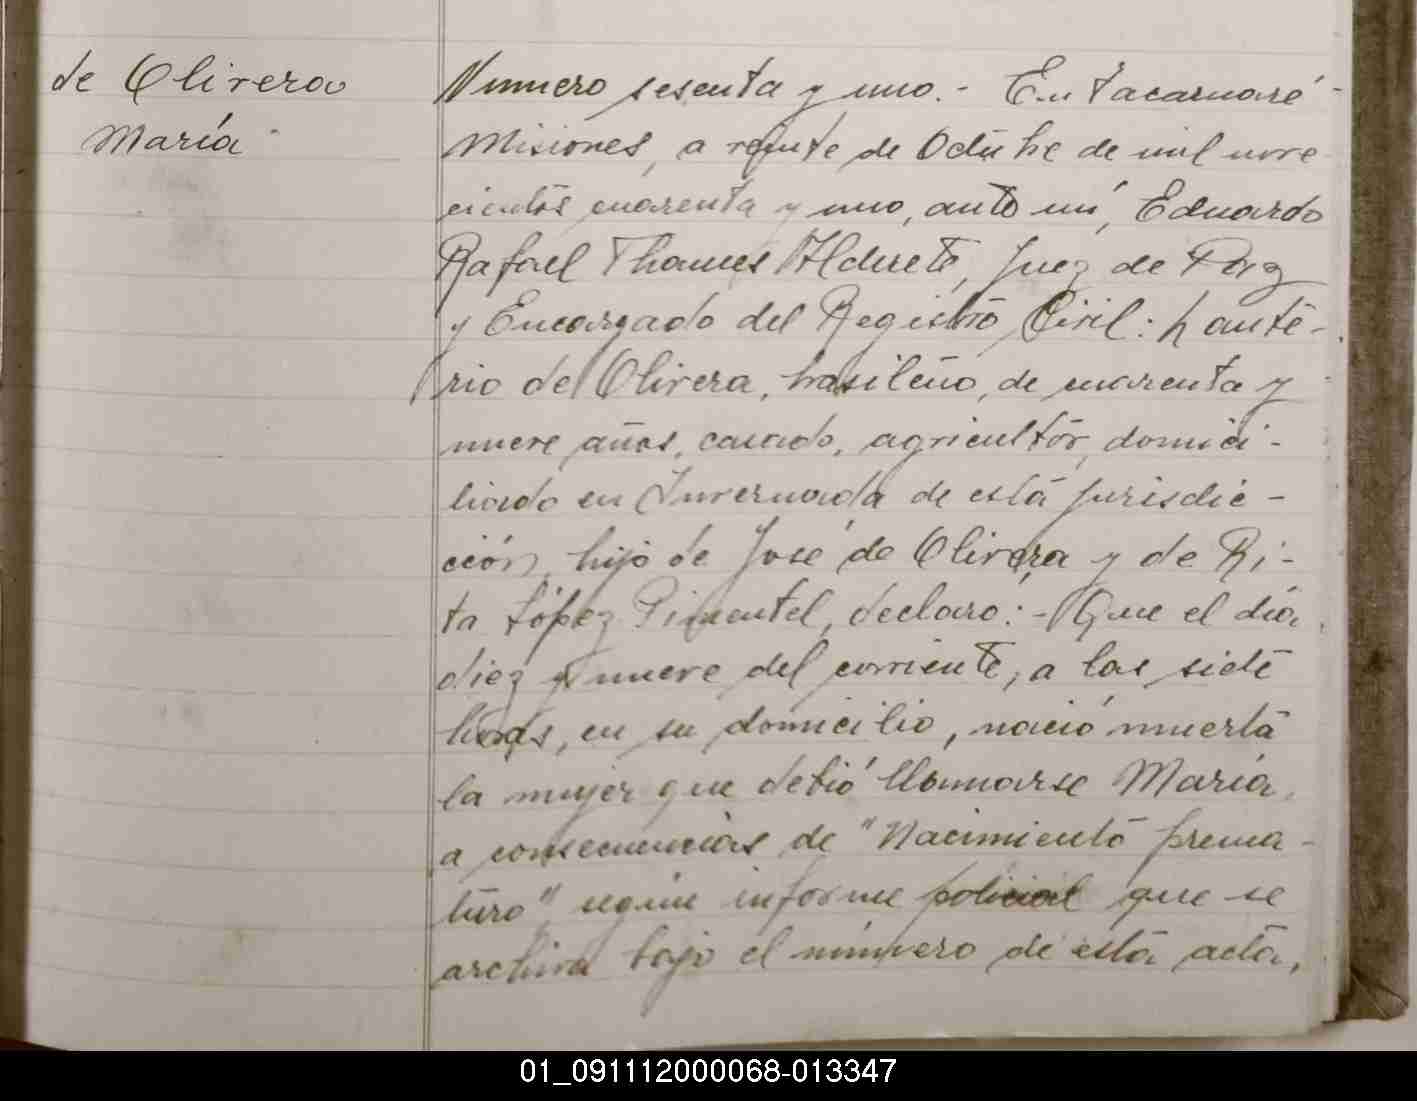 de Olivera
María
Número sesenta y uno.- En Tacaruaré
Misiones, a veinte de Octubre de mil nove
cientos cuarenta y uno, ante mí, Eduardo
Rafael Thames Alderete, Juez de Paz
y Encargado del Registro Civil: Lauté-
rio de Olivera, brasileño, de cuarenta y
nueve años, casado, agricultor, domici-
liado en Invernada de esta jurisdic-
ción, hijo de José de Olivera y de Ri-
ta López Pimentel, declaró:- Que el día
diez y nueve del corriente, a las siete
horas, en su domicilio, nació muerta
la mujer que debió llamarse María,
a consecuencias de "Nacimiento prema-
turo" según informe policial que se
archiva bajo el número de esta acta,
01_091112000068-013347